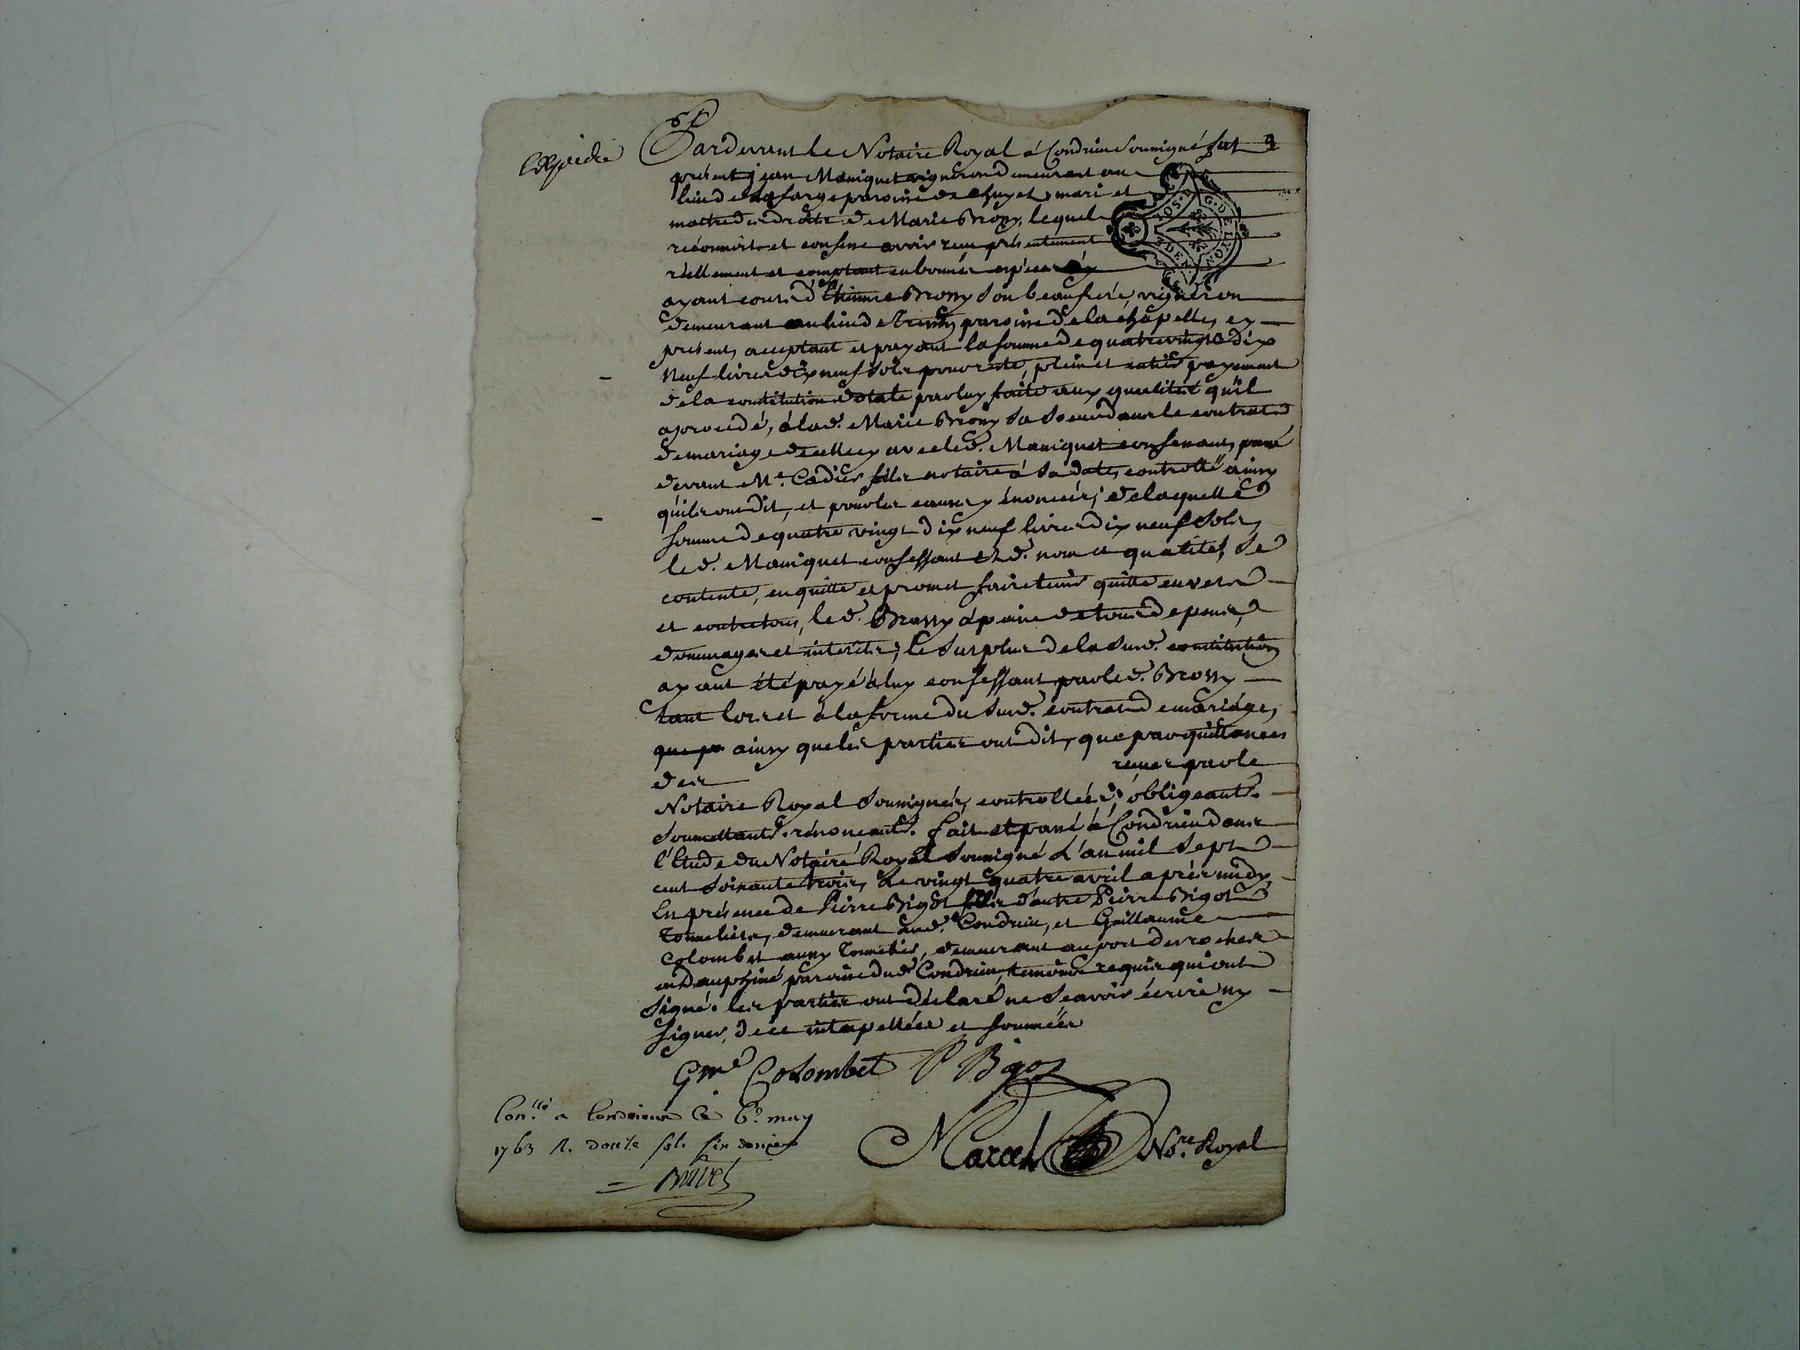 Expédié
Pardevant le Notaire Royal à Condrieu soussigné fut
présent jean Maniquet vigneron demeurant au
lieu de la farge paroisse de chuyet, mari et
maitre des droits de Marie Brossy, lequel
reconnoit et confesse avoir reçu présentement
réellement et comptant en bonnes espèces
ayant cours d'Etienne Brossy son beaufrère, vigneron
demeurant au lieu de paroisse de la chapelle, cy
présent, acceptant et payant la somme de quatre vingt dix
neuf livres dix neuf sols pour reste, plein et entier payement
de la constitution dotale par luy faite aux qualités qu'il
a procédé, à lad. Marie Brossy sa soeur dans le contrat
de mariage d'icelle avec led. Maniquet confessant, passé
devant Me. Cadier notaire à sa date, controllé ainsy
qu'ils ont dit, et pour les causes y énoncées; de laquelle
somme de quatre vingt dix neuf livres dix neuf sols,
led. Maniquet confessant esd. nom et qualités, se
contente, en quitte et promet faire tenir quitte envers
et contre tous, led. Brossy à peine de tous depens,
dommages et interets; le surplus de la susd. constitution
ayant été payé à luy confessant par led. Brossy
tant lors et à la forme du susd. contrat de mariage,
ainsy que les parties ont dit, que par quittances
des reçues par le
Notaire Royal soussigné, controllées; obligeants.
soumettants. renonceants. fait et passé à Condrieu dans
l'Etude du Notaire Royal soussigné L'an mil sept
cent soixante trois, Le vingt quatre avril après midy,
En présence de Pierre Bigot fils d'autre Pierre Bigot
Tonnelier, demeurant aud. Condrieu, et Guillaume
Colombet aussy Tonnelier, demeurant au port des roches
en dauphiné paroisse dud. Condrieu, temoins requis qui ont
signé. les parties ont déclaré ne sçavoir écrire ny
signer, de ce interpellées et sommées
Gme Colombet P Bigot
Con.llé a Condrieux le 6e may
1763 R. douze sols six deniers
Marcel No.re Royal